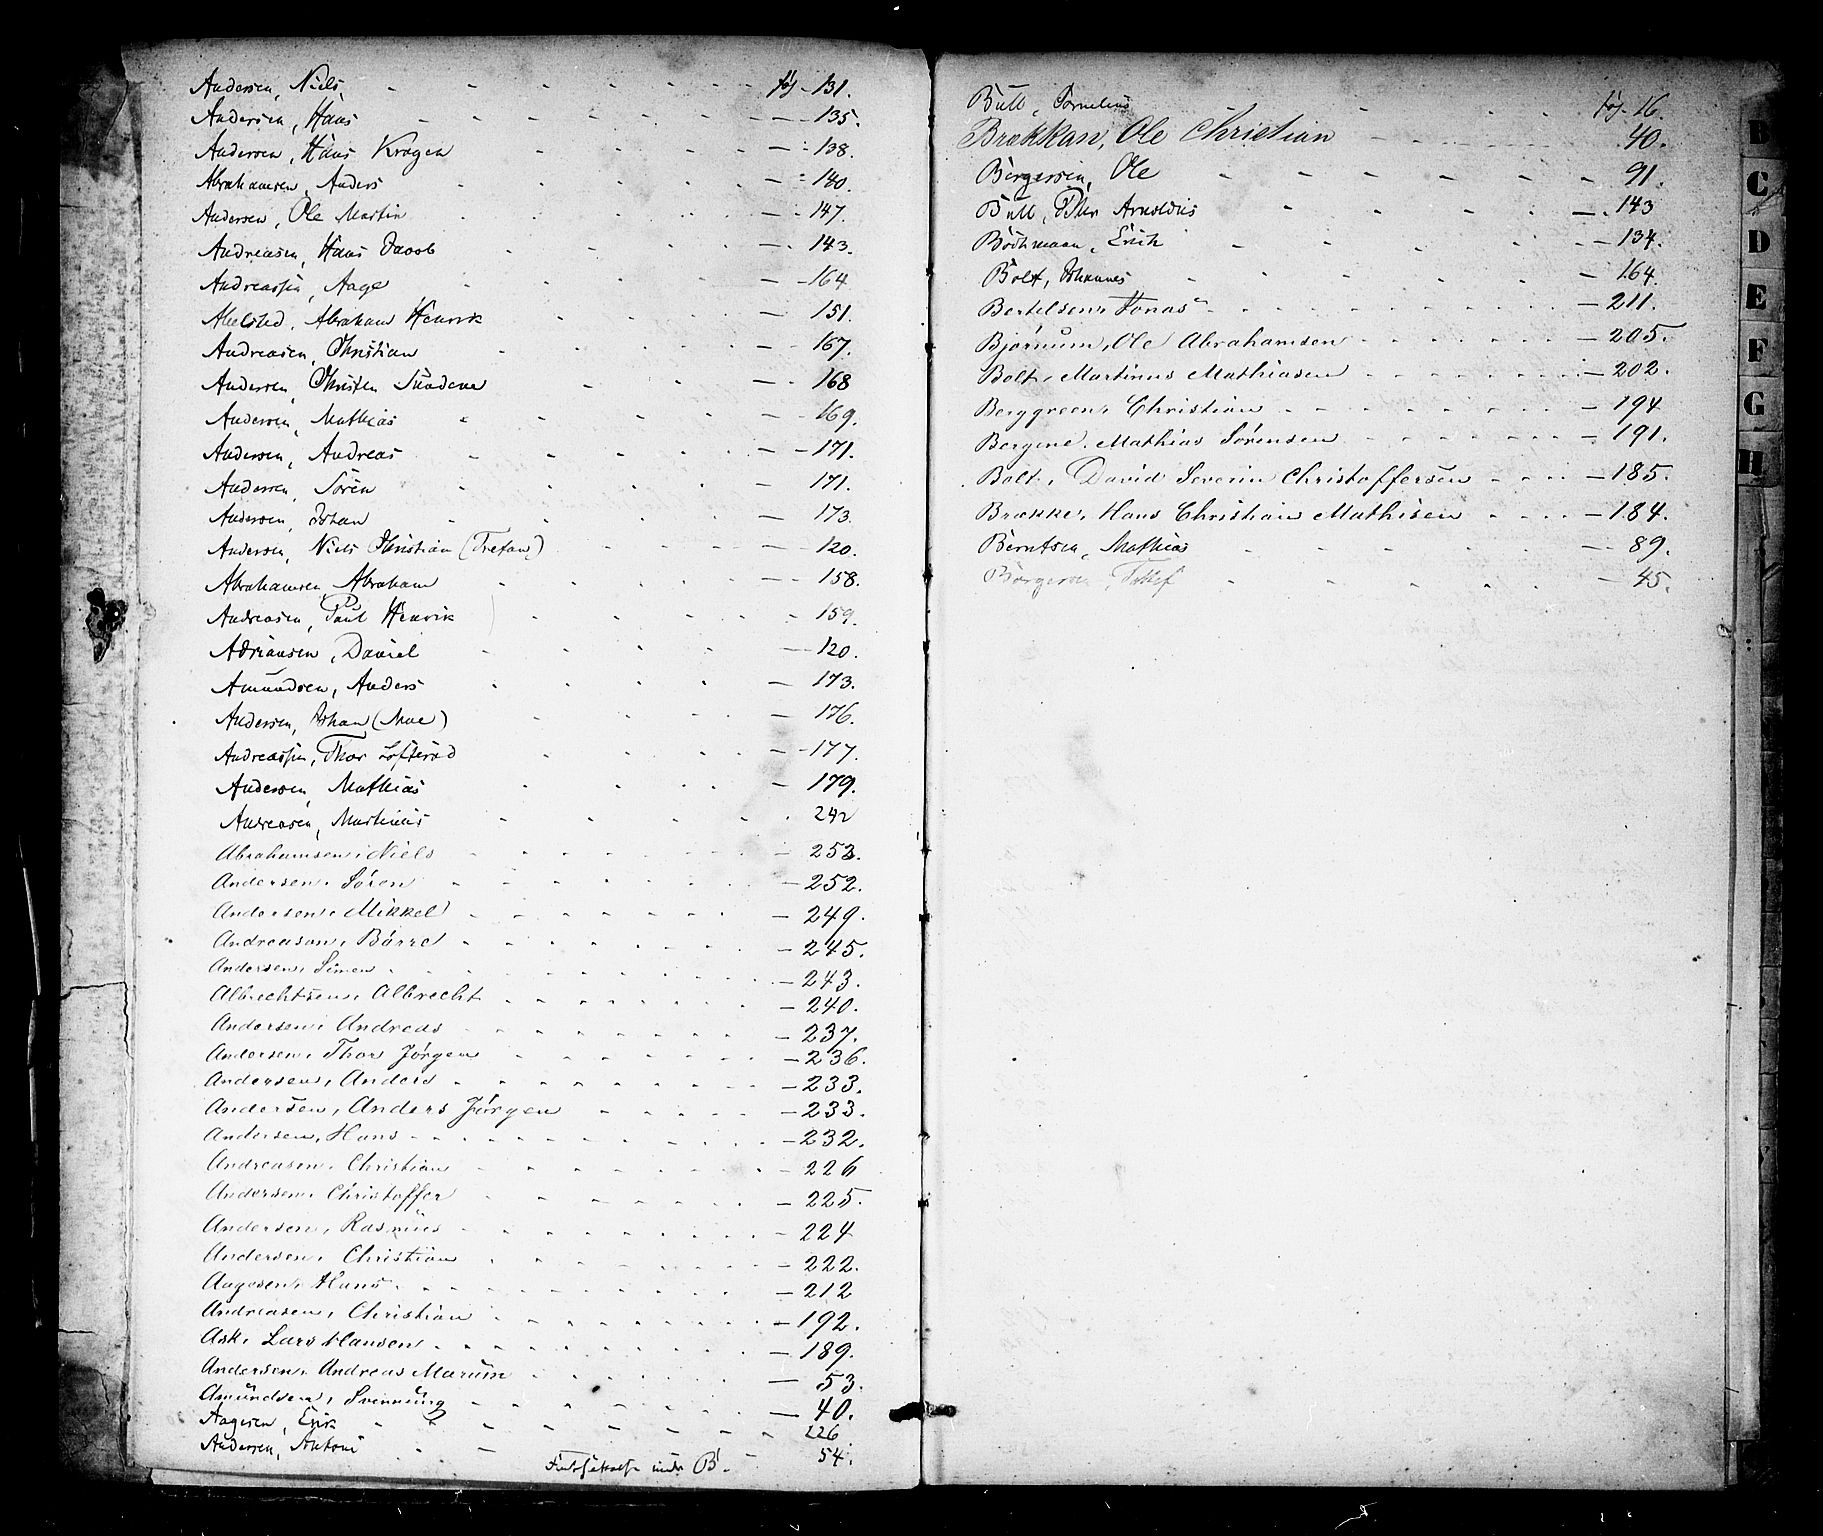 Andersen, Niels - - - - - - fol. 131.
Andersen, Hans - - - - - - 135.
Andersen, Hans Kragen - - - - 138.
Abrahamsen, Anders - - - - - 140.
Andersen, Ole Martin - - - - 147.
Andreasen, Hans Jacob - - - - 143.
Andreassen, Aage - - - - - 164
Abelsted, Abraham Henrik - - - - 151.
Andreasen, Christian - - - - 167.
Andersen, Christen - - - - 168
Andersen, Mathias - - - - - 169.
Andersen, Andreas - - - - - 171.
Andersen, Sören - - - - - 171.
Andersen, Johan - - - - - 173.
Andersen, Niels Christian (Trefan) - - - - 120.
Abrahamsen, Abraham - - - - 158.
Andreasen, Paul Henrik - - - - 159.
Adriansen, Daniel - - - - 120.
Amundsen, Anders - - - - 173.
Andersen, Johan (Moe) - - - - 176.
Andreassen, Thor Lofterød - - - - 177.
Andersen, Mathias - - - - 179.
Andreasen, Martinius - - - - 242
Abrahamsen, Niels - - - - 253.
Andersen, Søren - - - - 252.
Andersen, Mikkel - - - - 249.
Andreason, Børre - - - - 245.
Andersen, Simen - - - - 243.
Albrechtsen, Albrecht - - - - 240.
Andersen, Andreas - - - - 237.
Andersen, Thor Jørgen - - - - 236.
Andersen, Anders - - - - 233.
Andersen, Anders Jørgen - - - - 233.
Andersen, Hans - - - - 232.
Andreasen, Christian - - - - 226
Andersen, Christoffer - - - - 225.
Andersen, Rasmus - - - - 224
Andersen, Christian - - - - 222.
Aagesen, Hans - - - - 212
Andreasen, Christian - - - - 192.
Ask, Lars Hansen - - - - 189.
Andersen, Andreas Marum - - - - 53.
Amundsen, Svennung - - - - 40.
Aagesen, Erik - - - - 226
Andersen, Antoni - - - 54.
under B.
Bull, Cornelius fol. 16.
Brækkan, Ole Christian - - - - 40.
Børgersen, Ole - - - - 91.
Bull, Thor Arnoldus - - - - 143
Bödtmann, Erich - - - - 134.
Bolt, Johannes - - - - 164.
Bertelsen, Jonas - - - - 211.
Bjørnum, Ole Abrahamsen - - - - 205.
Bolt, Martinus Mathiasen - - - - 202.
Berggreen, Christian - - - - 194
Bergene, Mathias Sørensen - - - - 191.
Bolt, David Severin Christoffersen - - - - 185.
Brække, Hans Christian Mathisen - - - - 184.
Berntsen, Mathias - - - - 89.
Børgersen, Tollef - - - - 45.
B
C
D
E
F
G
H